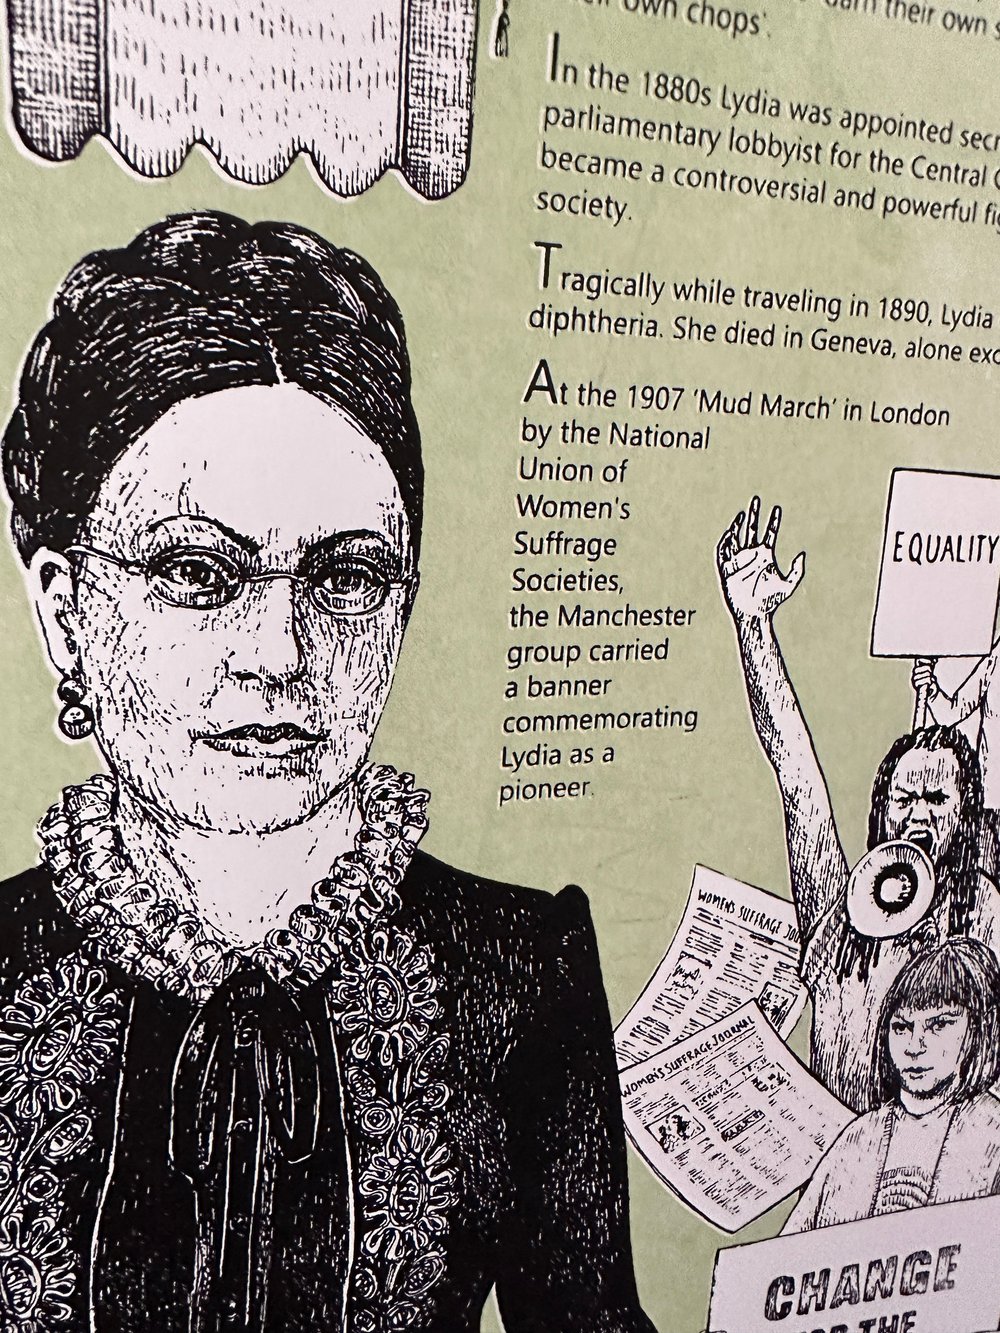 own chops'.
their own
In the 1880s Lydia was appointed
parliamentary lobbyist for the Central
became a controversial and powerful
society.
Tragically while traveling in 1890, Lydia
diphtheria. She died in Geneva, alone
At the 1907 'Mud March' in London
by the National
Union of
Women's
Suffrage
Societies,
the Manchester
group carried
a banner
commemorating
Lydia as a
pioneer.
EQUALITY
WOMEN'S SUFFRAGE
WOMEN'S SUFFRAGE JOURNAL
CHANGE
THE